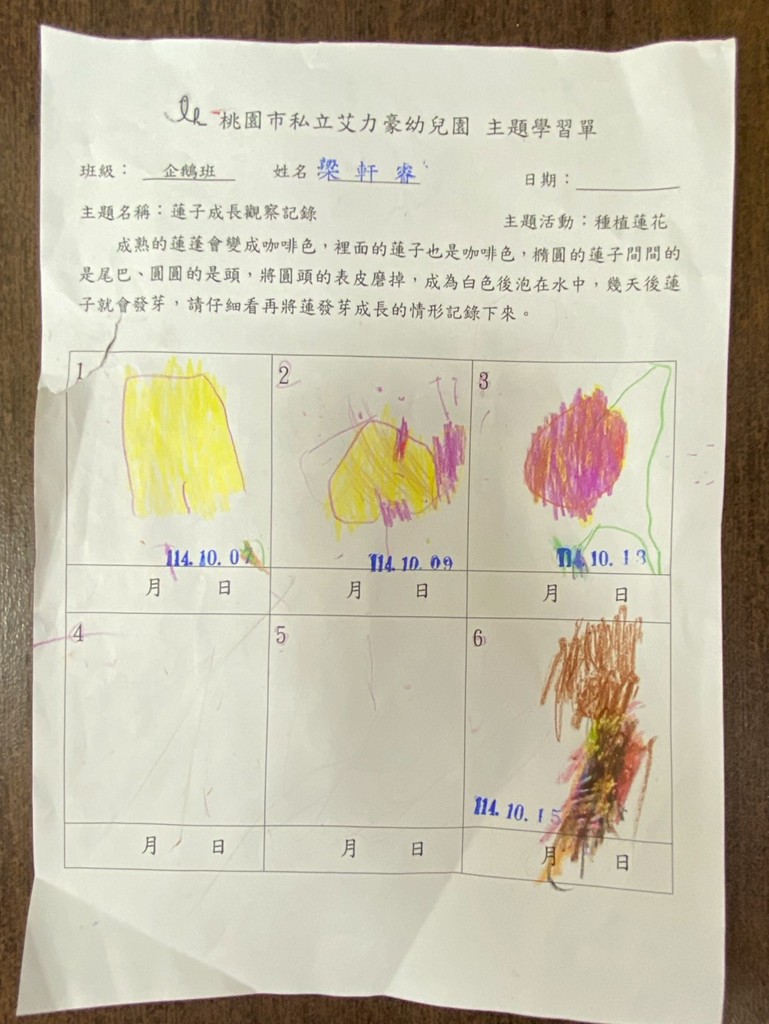 桃園市私立艾力豪幼兒園 主題學習單
班級： 企鵝班 姓名 梁軒睿 日期：
主題名稱：蓮子成長觀察記錄 主題活動：種植蓮花
成熟的蓮蓬會變成咖啡色，裡面的蓮子也是咖啡色，橢圓的蓮子間間的
是尾巴、圓圓的是頭，將圓頭的表皮磨掉，成為白色後泡在水中，幾天後蓮
子就會發芽，請仔細看再將蓮發芽成長的情形記錄下來。
1 2 3
114.10.07 114.10.09 114.10.13
月 日 月 日 月 日
4 5 6
114.10.15
月 日 月 日 月 日